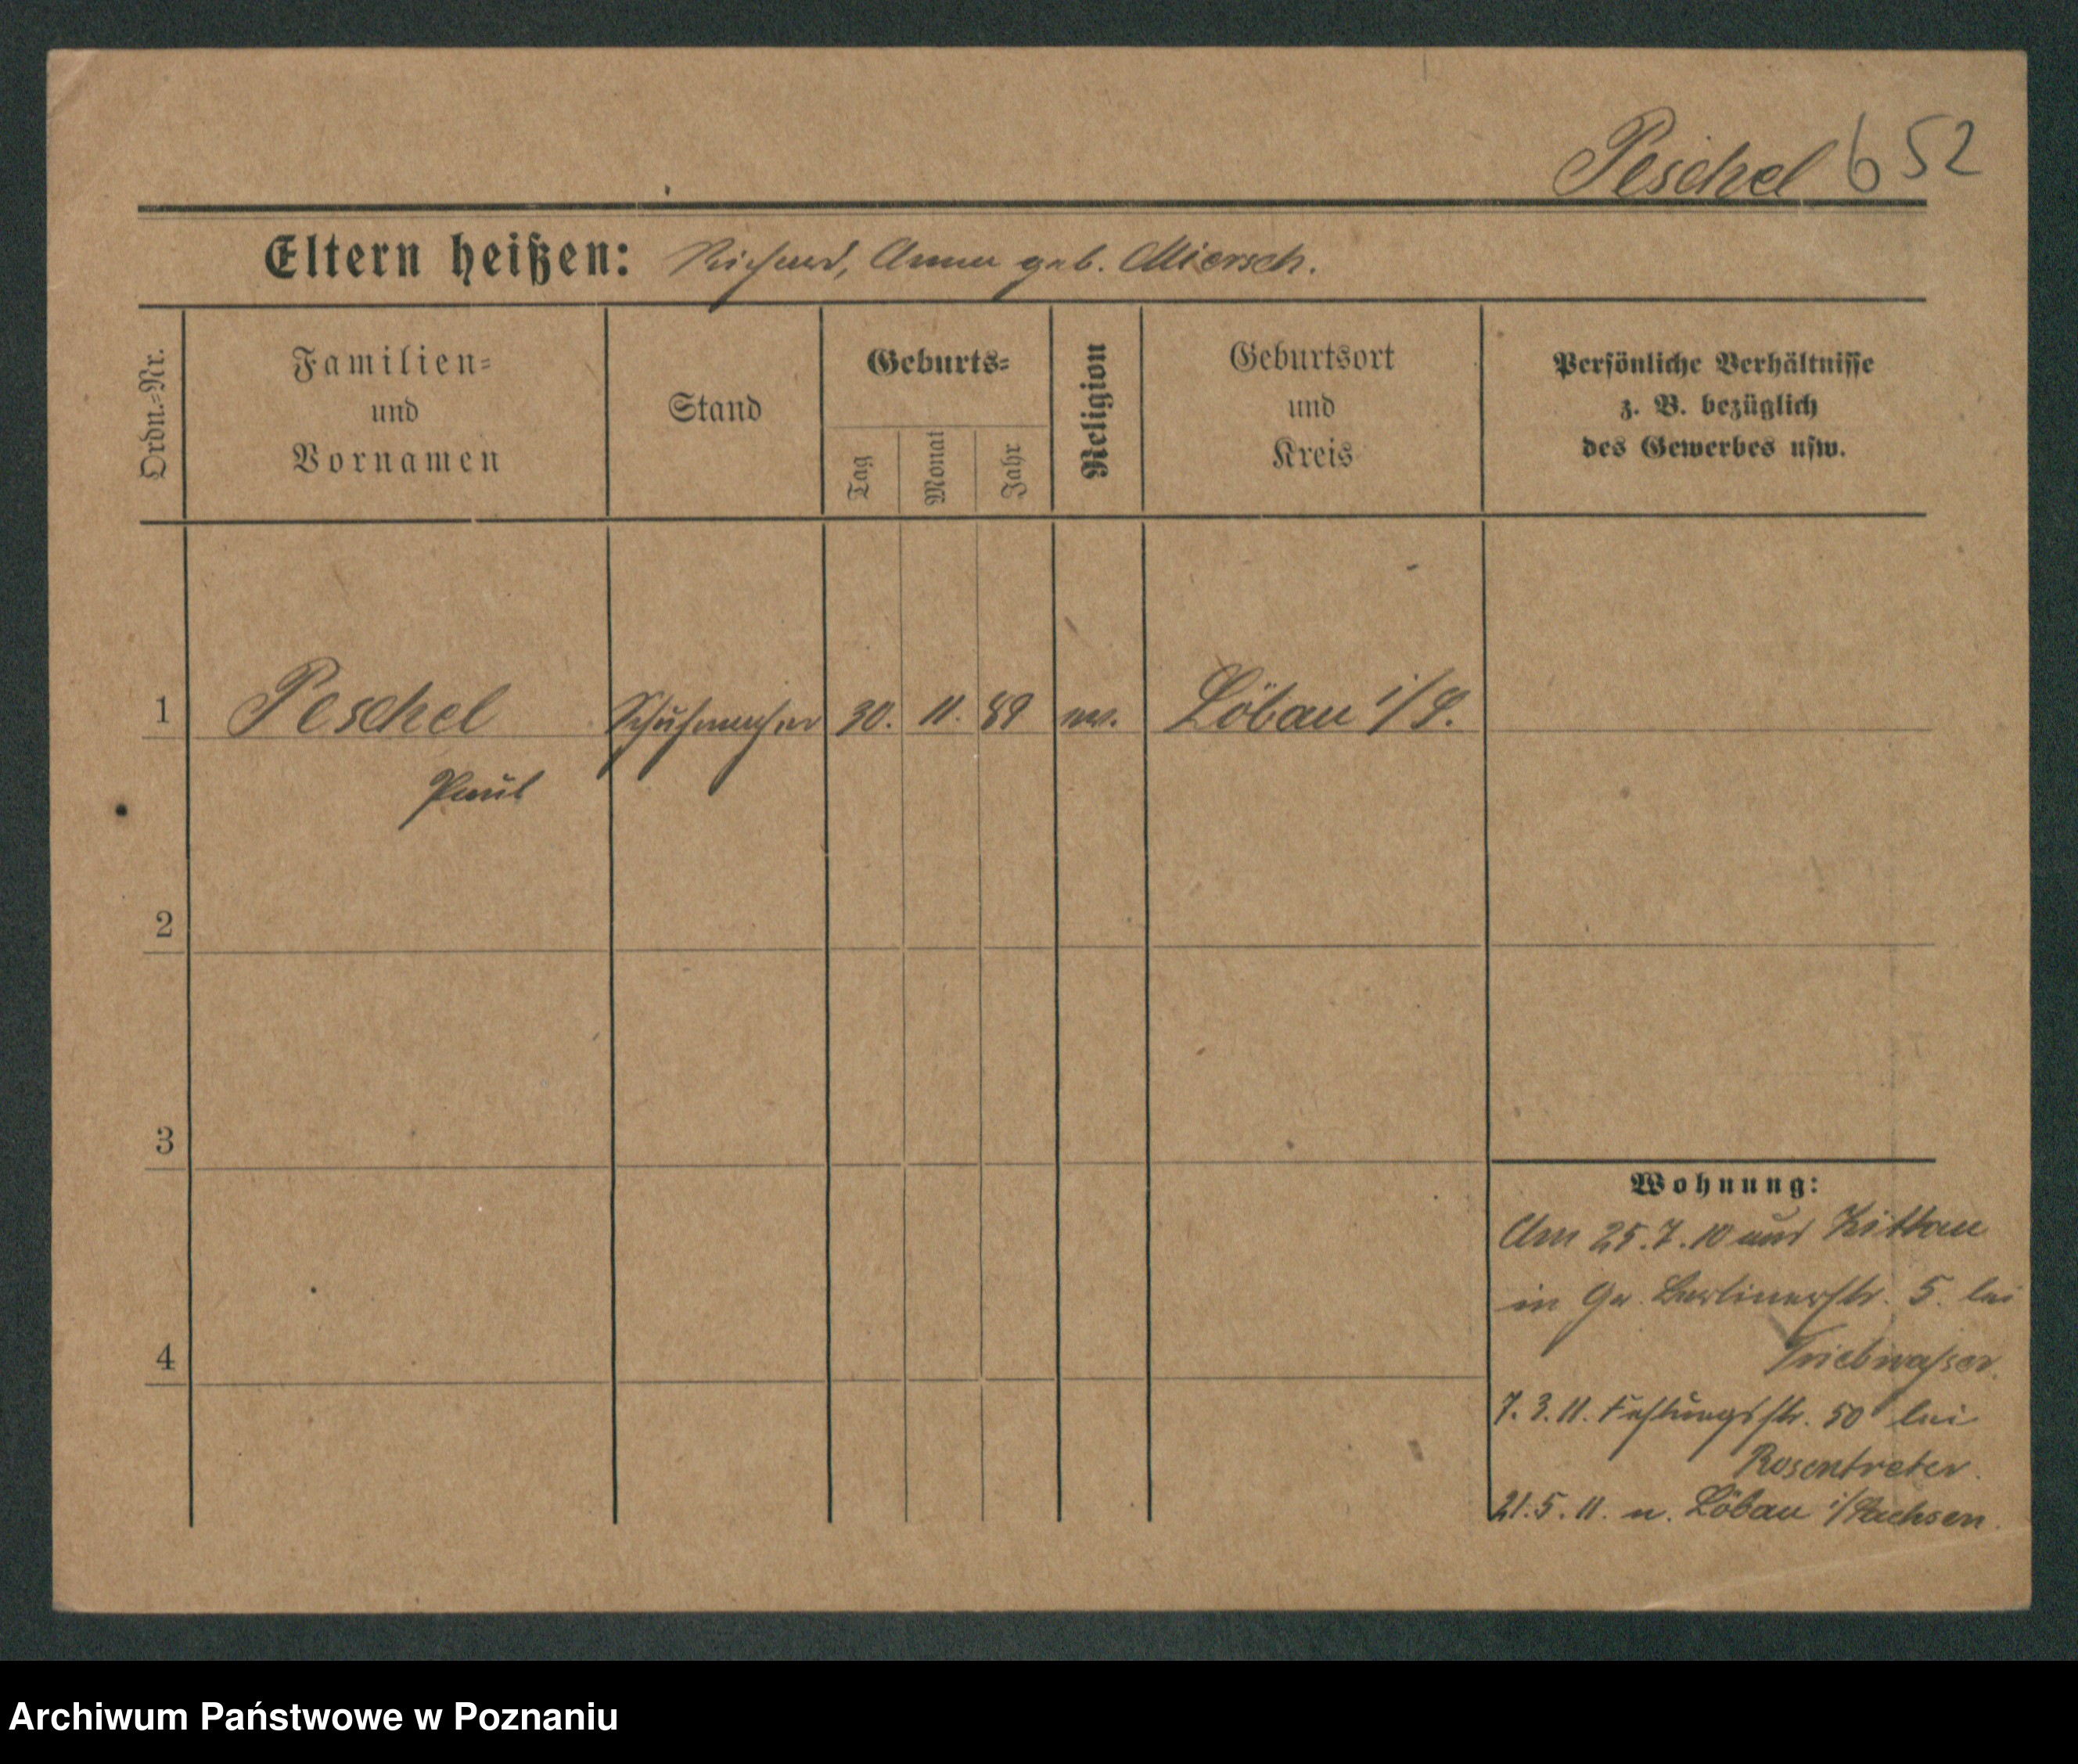 Peschel 652
Eltern heißen: Richard, Anna geb. Miersch.
Ordn.-Nr.
Familien-
und
Vornamen
Stand
Geburts-
Tag
Monat
Jahr
Religion
Geburtsort
und
Kreis
Persönliche Verhältnisse
z. B. bezüglich
des Gewerbes usw.
1 Peschel Schuhmacher 30. 11. 89 ev. Löbau i/S.
Paul
2
3
4
Wohnung:
Am 25.7.10 aus Zittau
in Gr. Berlinerstr. 5. bei
Triebwasser.
7.3.11. Festungsstr. 50 bei
Rosentreter.
21.5.11. n. Löbau i/Sachsen.
Archiwum Państwowe w Poznaniu